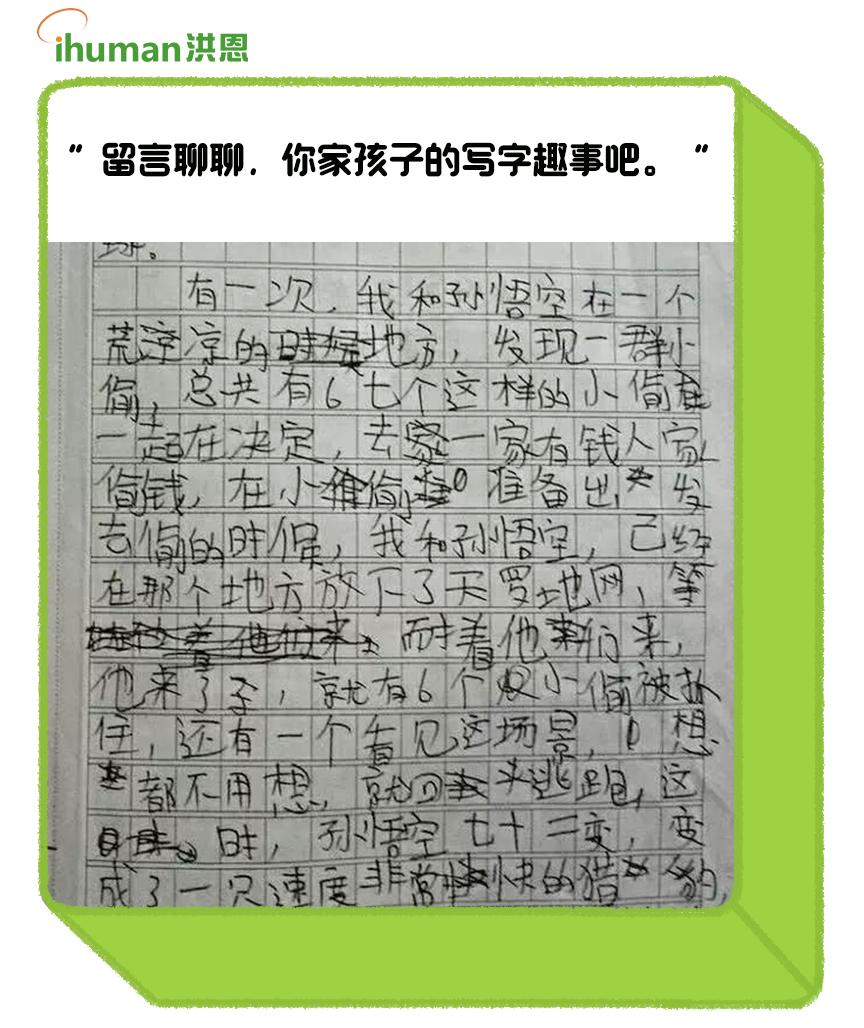 ihuman洪恩
" 留言聊聊，你家孩子的写字趣事吧。 "
球。
有一次，我和孙悟空在一个
荒凉凉的地方，发现一群小
偷，总共有6七个这样的小偷
一起在决定，去一家有钱人家
偷钱，在小偷准备出发
去偷的时候，我和孙悟空，已经
在那个地方放下了天罗地网，等
着他们来，
他来了了，就有6个小偷被抓
住，还有一个看见这场景，想
都不用想，就回头逃跑，这
时，孙悟空七十二变，变
成了一只速度非常快的猎豹